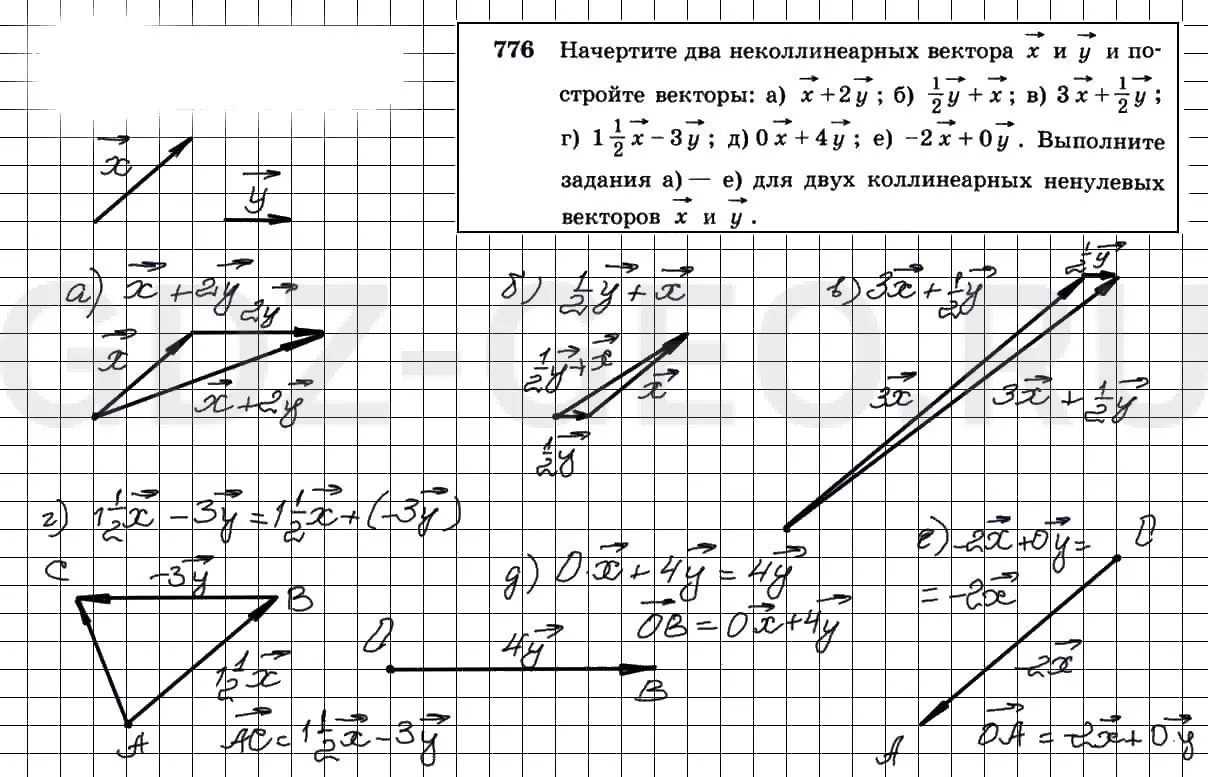 776 Начертите два неколлинеарных вектора x⃗ и y⃗ и по-
стройте векторы: а) x⃗ + 2y⃗ ; б) ½y⃗ + x⃗ ; в) 3x⃗ + ½y⃗ ;
г) 1½x⃗ − 3y⃗ ; д) 0x⃗ + 4y⃗ ; е) −2x⃗ + 0y⃗ . Выполните
задания а) — е) для двух коллинеарных ненулевых
векторов x⃗ и y⃗ .
x⃗
y⃗
а) x⃗ + 2y⃗
2y⃗
x⃗
x⃗ + 2y⃗
б) ½y⃗ + x⃗
½y⃗ + x⃗
x⃗
½y⃗
в) 3x⃗ + ½y⃗
½y⃗
3x⃗
3x⃗ + ½y⃗
г) 1½x⃗ − 3y⃗ = 1½x⃗ + (−3y⃗)
C
−3y⃗
B
1½x⃗
A
AC⃗ = 1½x⃗ − 3y⃗
д) 0·x⃗ + 4y⃗ = 4y⃗
OB⃗ = 0x⃗ + 4y⃗
O
4y⃗
B
е) −2x⃗ + 0y⃗ =
= −2x⃗
O
−2x⃗
A
OA⃗ = −2x⃗ + 0·y⃗
GDZ-GEO.RU